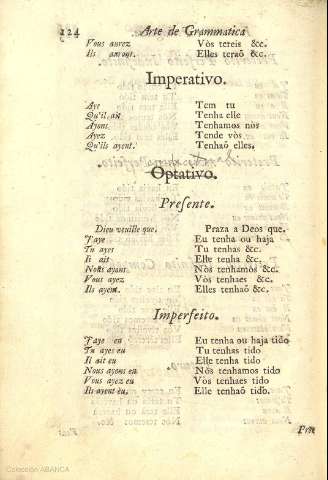 124 Arte de Grammatica
Vous aurez Vòs tereis &c.
Ils auront. Elles teraõ &c.
Imperativo.
Aye Tem tu
Qu'il ait Tenha elle
Ayons Tenhamos nòs
Ayez Tende vòs
Qu'ils ayent. Tenhaõ elles.
Optativo.
Presente.
Dieu veuille que. Praza a Deos que.
J'aye Eu tenha ou haja
Tu ayes Tu tenhas &c.
Il ait Elle tenha &c.
Nous ayons Nòs tenhamos &c.
Vous ayez Vòs tenhaes &c.
Ils ayent. Elles tenhaõ &c.
Imperfeito.
J'aye eu Eu tenha ou haja tido
Tu ayes eu Tu tenhas tido
Il ait eu Elle tenha tido
Nous ayons eu Nós tenhamos tido
Vous ayez eu Vòs tenhaes tido
Ils ayent eu. Elle tenhaõ tido.
Colección ABANCA